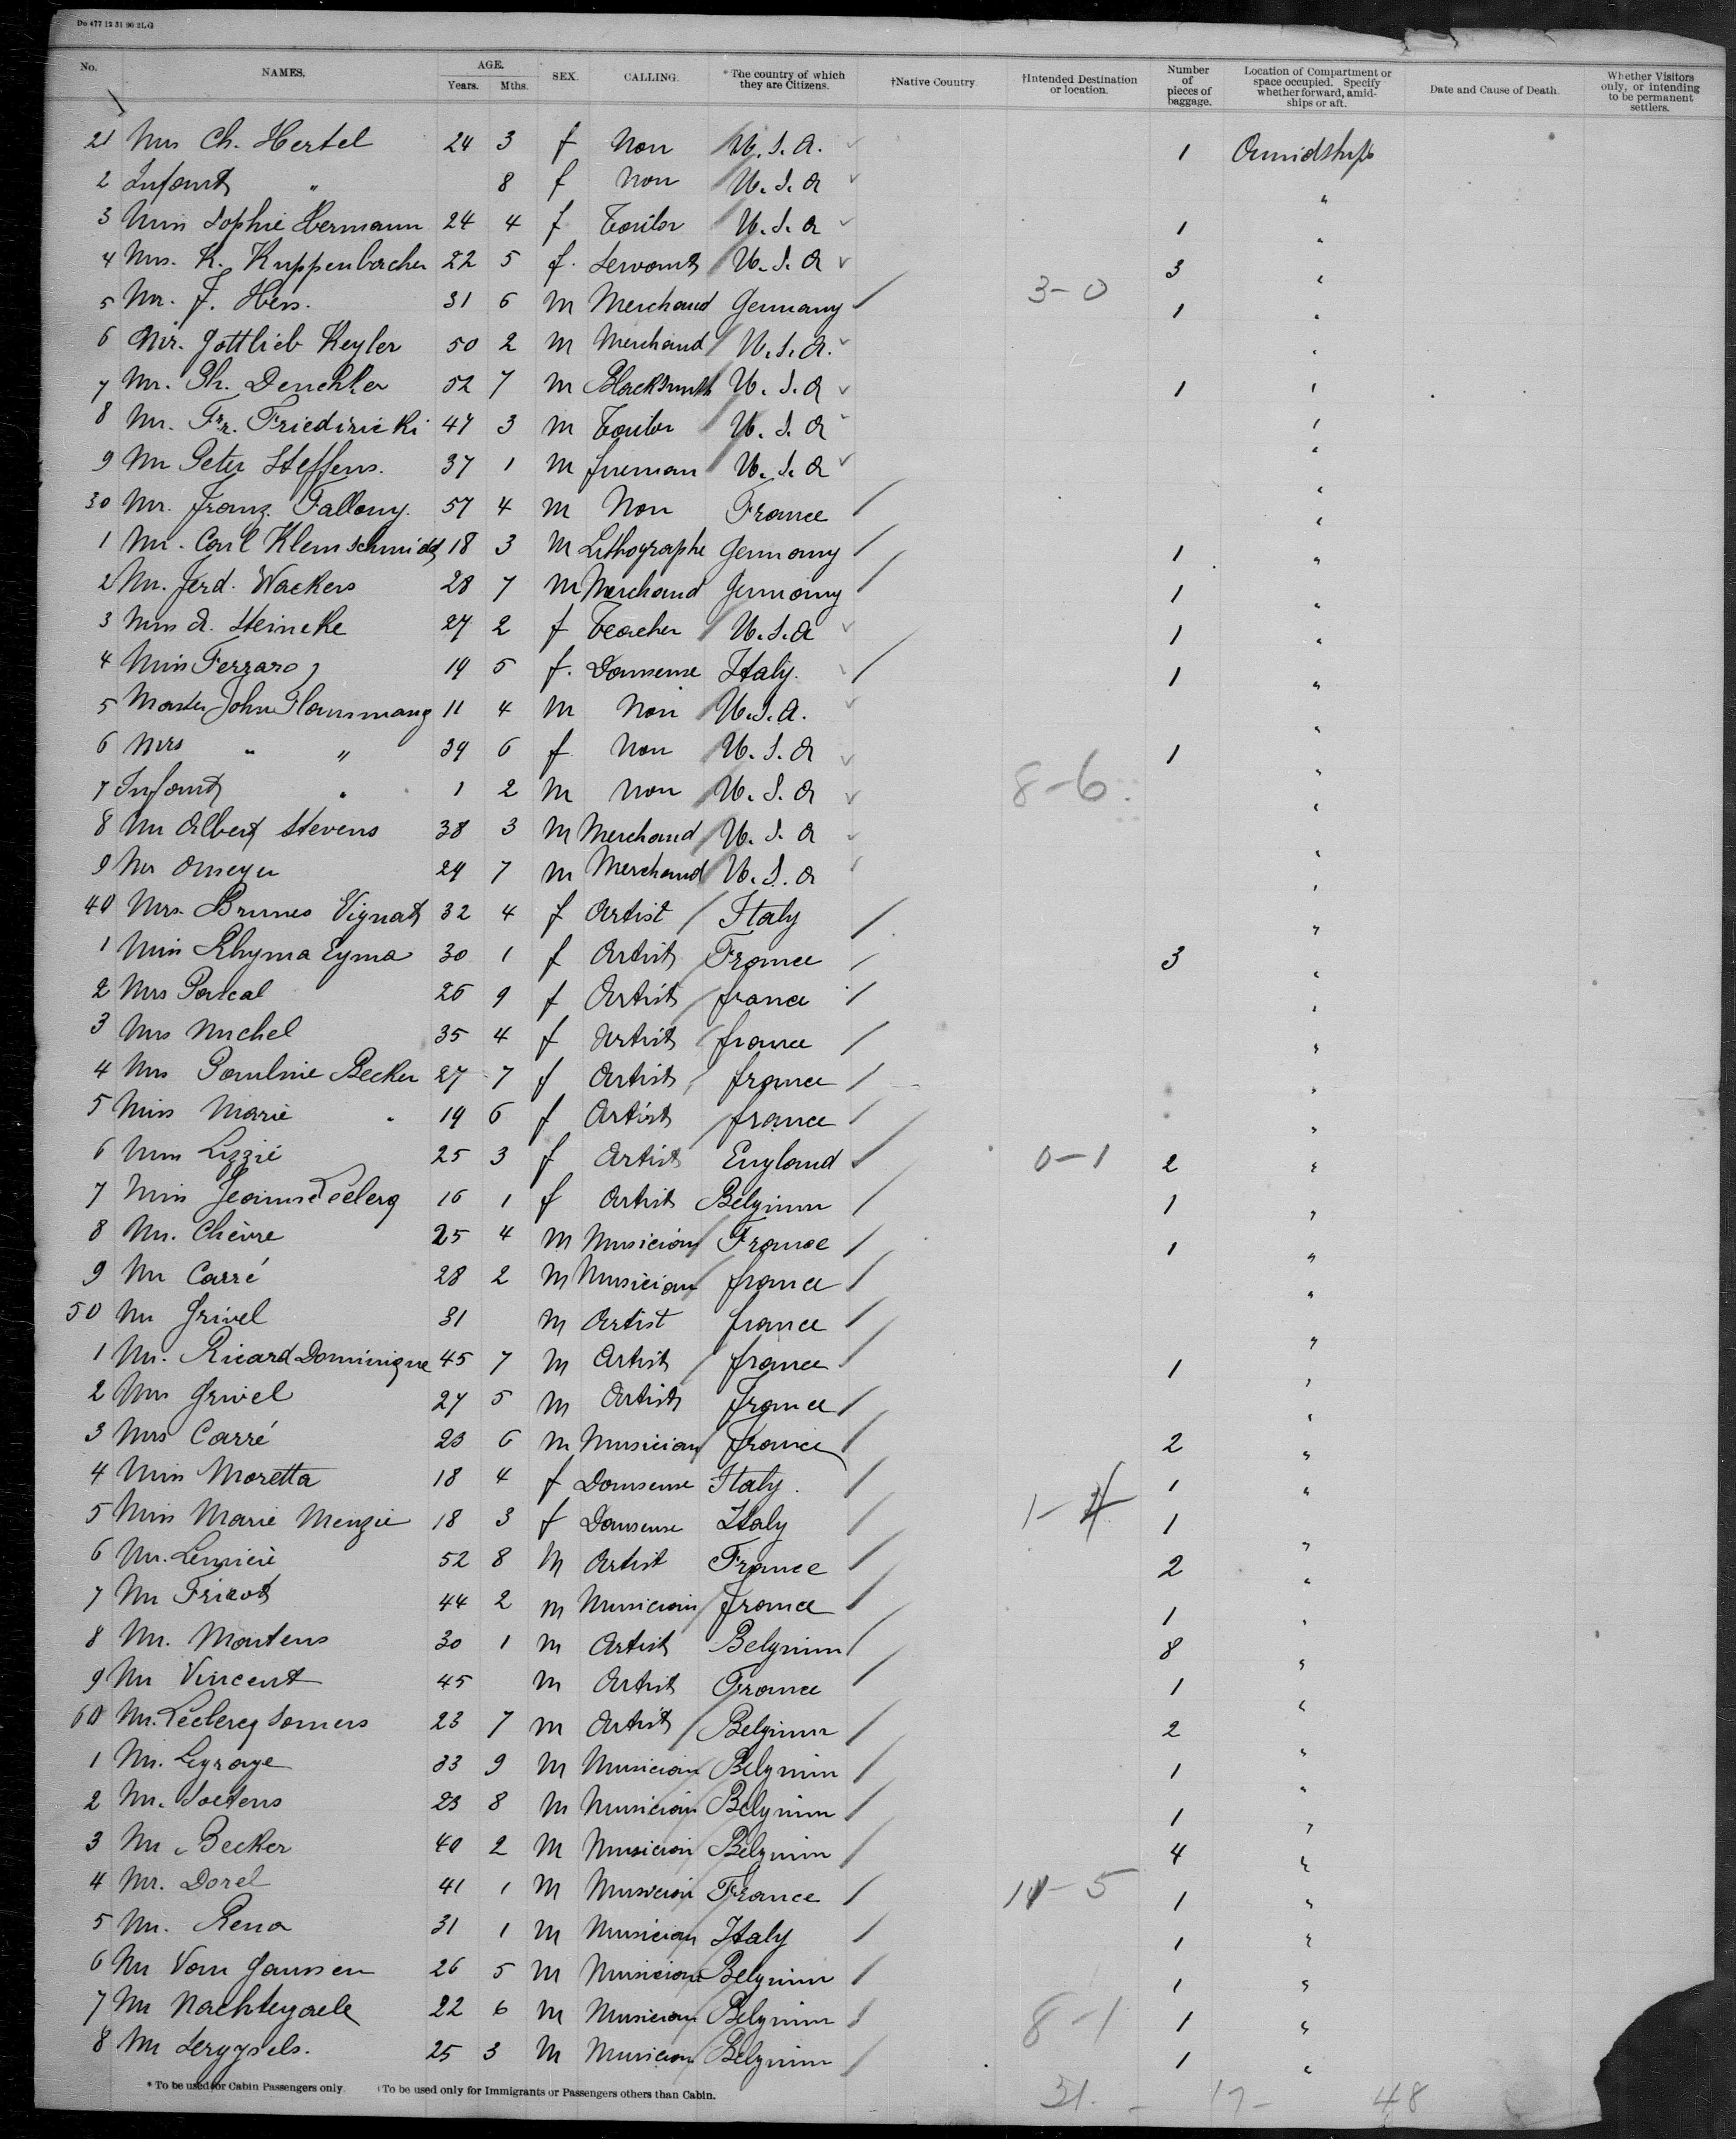 Do 477 12 31 90 2LG
No. NAMES. AGE. Years. Mths. SEX. CALLING. *The country of which they are Citizens. †Native Country †Intended Destination or location. Number of pieces of baggage. Location of Compartment or space occupied. Specify whether forward, amidships or aft. Date and Cause of Death. Whether Visitors only, or intending to be permanent settlers.
21 Mrs Ch. Hertel 24 3 f Non U.S.A. 1 Amidships
2 Infant " 8 f Non U.S.A "
3 Miss Sophie Hermann 24 4 f Tailor U.S.A 1 "
4 Mrs. K. Kuppenbacher 22 5 f. Servant U.S.A 3 "
5 Mr. F. Hess. 31 6 M Merchand Germany 3-0 1 "
6 Mr. Gottlieb Keyler 50 2 M Merchand U.S.A. "
7 Mr. Ph. Denchler 52 7 M Blacksmith U.S.A 1 "
8 Mr. Fr. Friediricki 47 3 M Tailor U.S.A "
9 Mr Peter Steffens. 37 1 M fireman U.S.A "
30 Mr. Franz. Fallony. 57 4 M Non France "
1 Mr. Carl Klemschmidt 18 3 M Lithographe Germany 1 "
2 Mr. Ferd. Wackers 28 7 M Merchand Germany 1 "
3 Miss A. Steincke 27 2 f Teacher U.S.A 1 "
4 Miss Ferraro 19 5 f. Danseuse Italy. 1 "
5 Master John 11 4 M Non U.S.A. "
6 Mrs " " 39 6 f Non U.S.A 1 "
7 Infant " 1 2 M Non U.S.A 8-6 "
8 Mr Albert Stevens 38 3 M Merchand U.S.A "
9 Mr Omeyer 29 7 M Merchand U.S.A "
40 Mrs. Brunes Vignat 32 4 f Artist Italy "
1 Miss Rhyma Eyma 30 1 f Artist France 3 "
2 Mrs Pascal 26 9 f Artist france "
3 Mrs Michel 35 4 f Artist france "
4 Mrs Pauline Becker 27 7 f Artist france "
5 Miss Marie " 19 6 f Artist france "
6 Miss Lizzie 25 3 f Artist England 0-1 2 "
7 Miss Jeanne Leclerq 16 1 f Artist Belgium 1 "
8 Mr. Chèvre 25 4 M Musician France 1 "
9 Mr Carré 28 2 M Musician france "
50 Mr Grivel 31 M Artist france "
1 Mr. Ricard Dominique 45 7 M Artist france 1 "
2 Mrs Grivel 27 5 M Artist france "
3 Mrs Carré 23 6 M Musician france 2 "
4 Miss Moretta 18 4 f Danseuse Italy. 1 "
5 Miss Marie Menzie 18 3 f Danseuse Italy 1- 1 "
6 Mr. 52 8 M Artist France 2 "
7 Mr Fricot 44 2 M Musician france 1 "
8 Mr. Martens 30 1 M Artist Belgium 8 "
9 Mr Vincent 45 M Artist France 1 "
60 Mr. Leclercq Somers 23 7 M Artist Belgium 2 "
1 Mr. Legraye 33 9 M Musician Belgium 1 "
2 Mr. Soetens 23 8 M Musician Belgium 1 "
3 Mr. Becker 40 2 M Musician Belgium 4 "
4 Mr. Dorel 41 1 M Musician France 11-5 1 "
5 Mr. Rena 31 1 M Musician Italy 1 "
6 Mr Van Janssen 26 5 M Musician Belgium 1 "
7 Mr Nachtegaele 22 6 M Musician Belgium 8-1 1 "
8 Mr Seryysels. 25 3 M Musician Belgium 1 "
* To be used for Cabin Passengers only. †To be used only for Immigrants or Passengers others than Cabin.
31. - 17 - 48